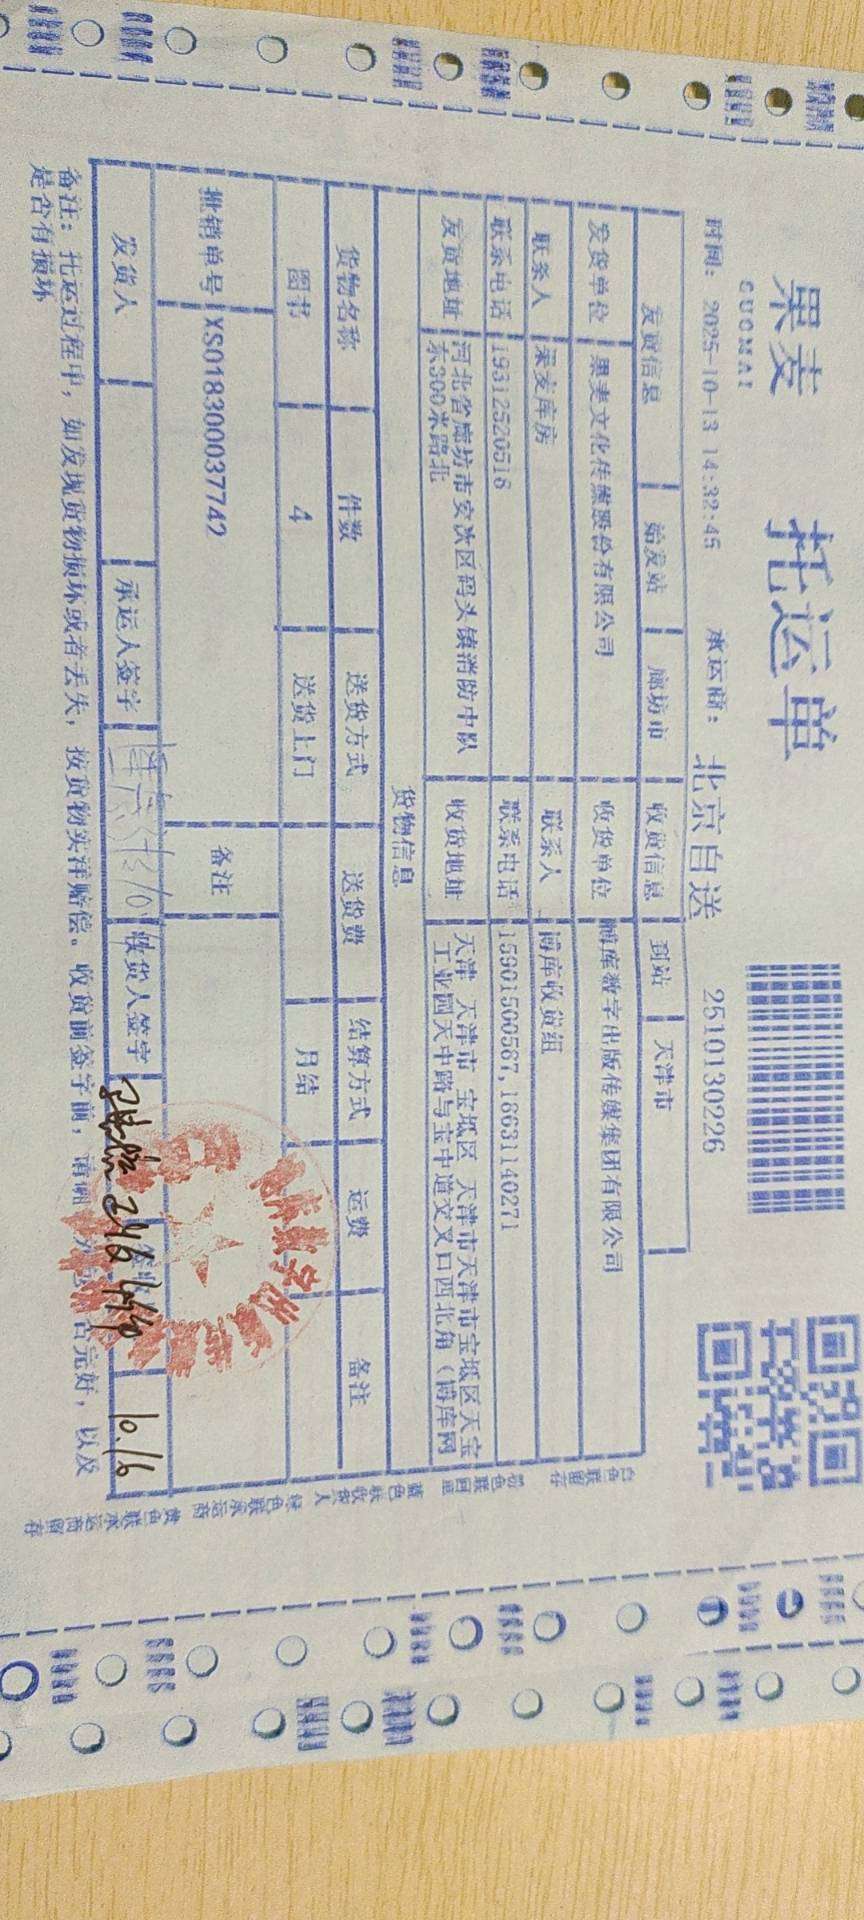 果麦
GUOMAI
托运单
时间: 2025-10-13 14:32:45 承运商: 北京自送 2510130226
发货信息 始发站 廊坊市 收货信息 到站 天津市
发货单位 果麦文化传媒股份有限公司 收货单位 博库数字出版传媒集团有限公司
联系人 果麦库房 联系人 博库收货组
联系电话 19312520516 联系电话 15901500567,18631140271
发货地址 河北省廊坊市安次区码头镇消防中队东300米路北 收货地址 天津 天津市 宝坻区 天津市天津市宝坻区天宝工业园天中路与宝中道交叉口西北角（博库网
货物信息
货物名称 件数 送货方式 送货费 结算方式 运费 备注
图书 4 送货上门 月结
批销单号 XS018300037742 备注
发货人 承运人签字 收货人签字 签收 10.16
备注: 托运过程中，如发现货物损坏或者丢失，按货物实洋赔偿。收货前签字前，请 完好，以及
是否有损坏
白色联留存
粉色联回单
蓝色联收货人
绿色联承运商
黄色联承运商留存